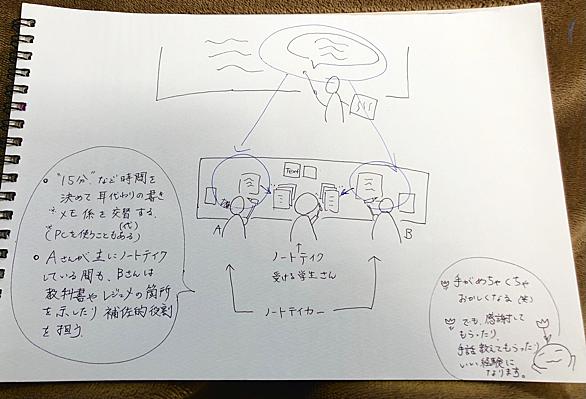 Text
A
B
ノートテイク
受ける学生さん
ノートテイカー
○ "15分"など時間を
決めて耳代わりの書き
メモ係を交替する.
(代)
(PCを使うこともある)
○ Aさんが主にノートテイク
している間も、Bさんは
教科書やレジュメの箇所
を示したり補佐的役割
を担う.
手がめちゃくちゃ
おかしくなる(笑)
でも、感謝して
もらったり、
手話教えてもらったり
いい経験に
なります。